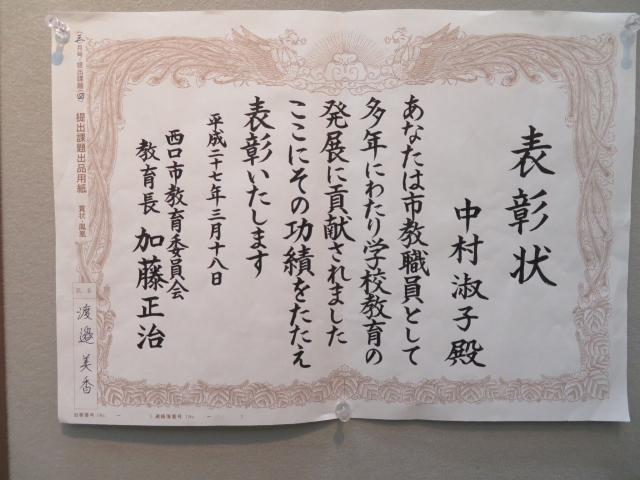 表彰状
中村淑子殿
あなたは市教職員として
多年にわたり学校教育の
発展に貢献されました
ここにその功績をたたえ
表彰いたします
平成二十七年三月十八日
西口市教育委員会
教育長 加藤正治
提出課題出品用紙 賞状・鳳凰
氏名
渡邉美香